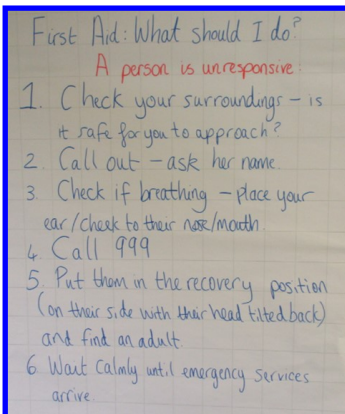 First Aid: What should I do?
A person is unresponsive
1. Check your surroundings – is
it safe for you to approach?
2. Call out – ask her name.
3. Check if breathing – place your
ear/cheek to their nose/mouth
4. Call 999
5. Put them in the recovery position
(on their side with their head tilted back)
and find an adult
6. Wait Calmly until emergency services
arrive